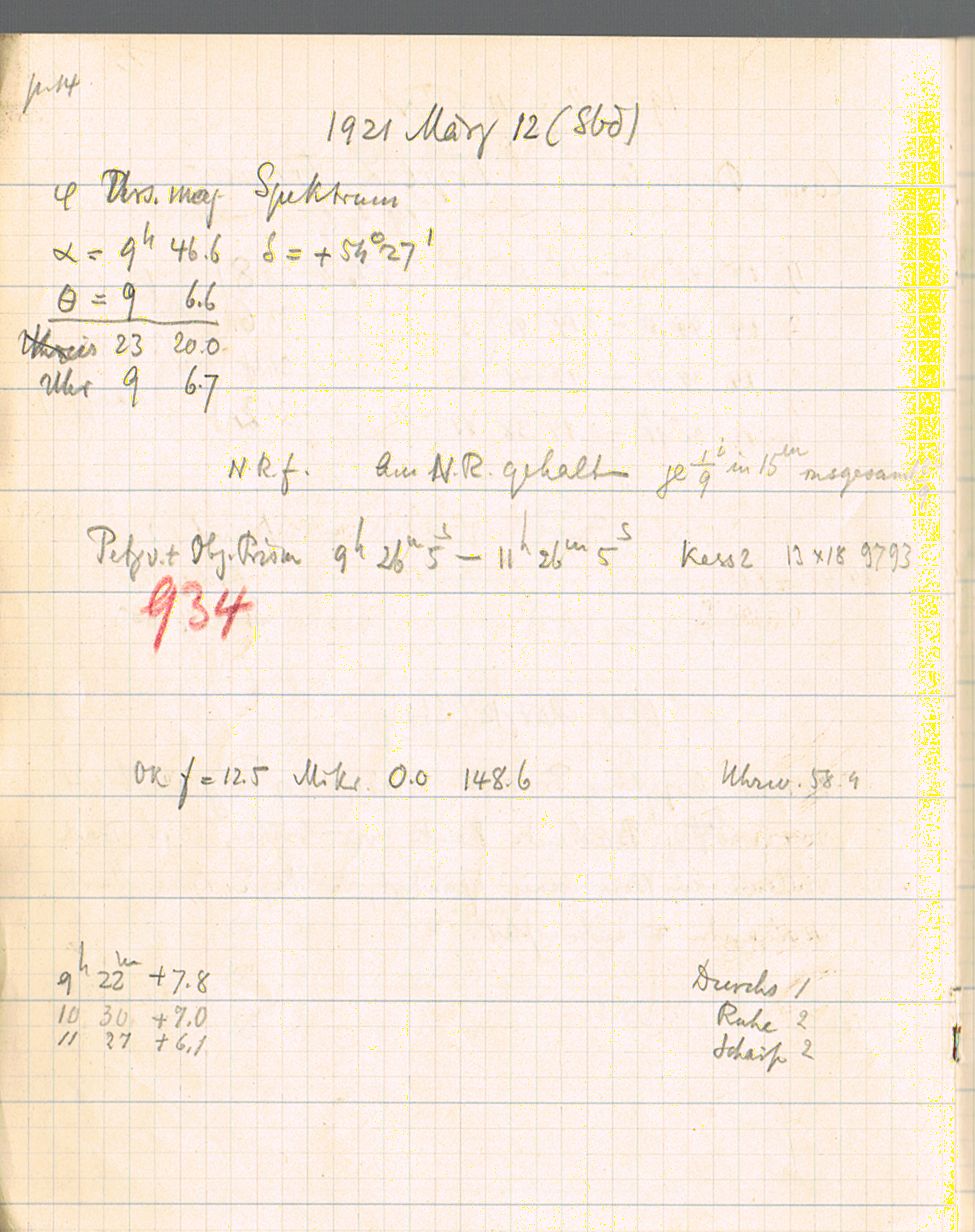 1921 März 12 (Sbd)
φ Urs. maj Spektrum
α = 9h 46.6 δ = + 54° 27'
θ = 9 6.6
23 20.0
Uhr 9 6.7
N.R.f. Am N.R. gehalten je 1/9 i in 15m insgesamt
Petzv. + Obj. Prism 9h 26m 5s — 11h 26m 5s Kass 2 13 x 18 9793
934
OR f = 12.5 Mikr. 0.0 148.6 Uhrw. 58.4
9h 22m +7.8 Durchs 1
10 30 +7.0 Ruhe 2
11 27 +6.1 Schärf 2